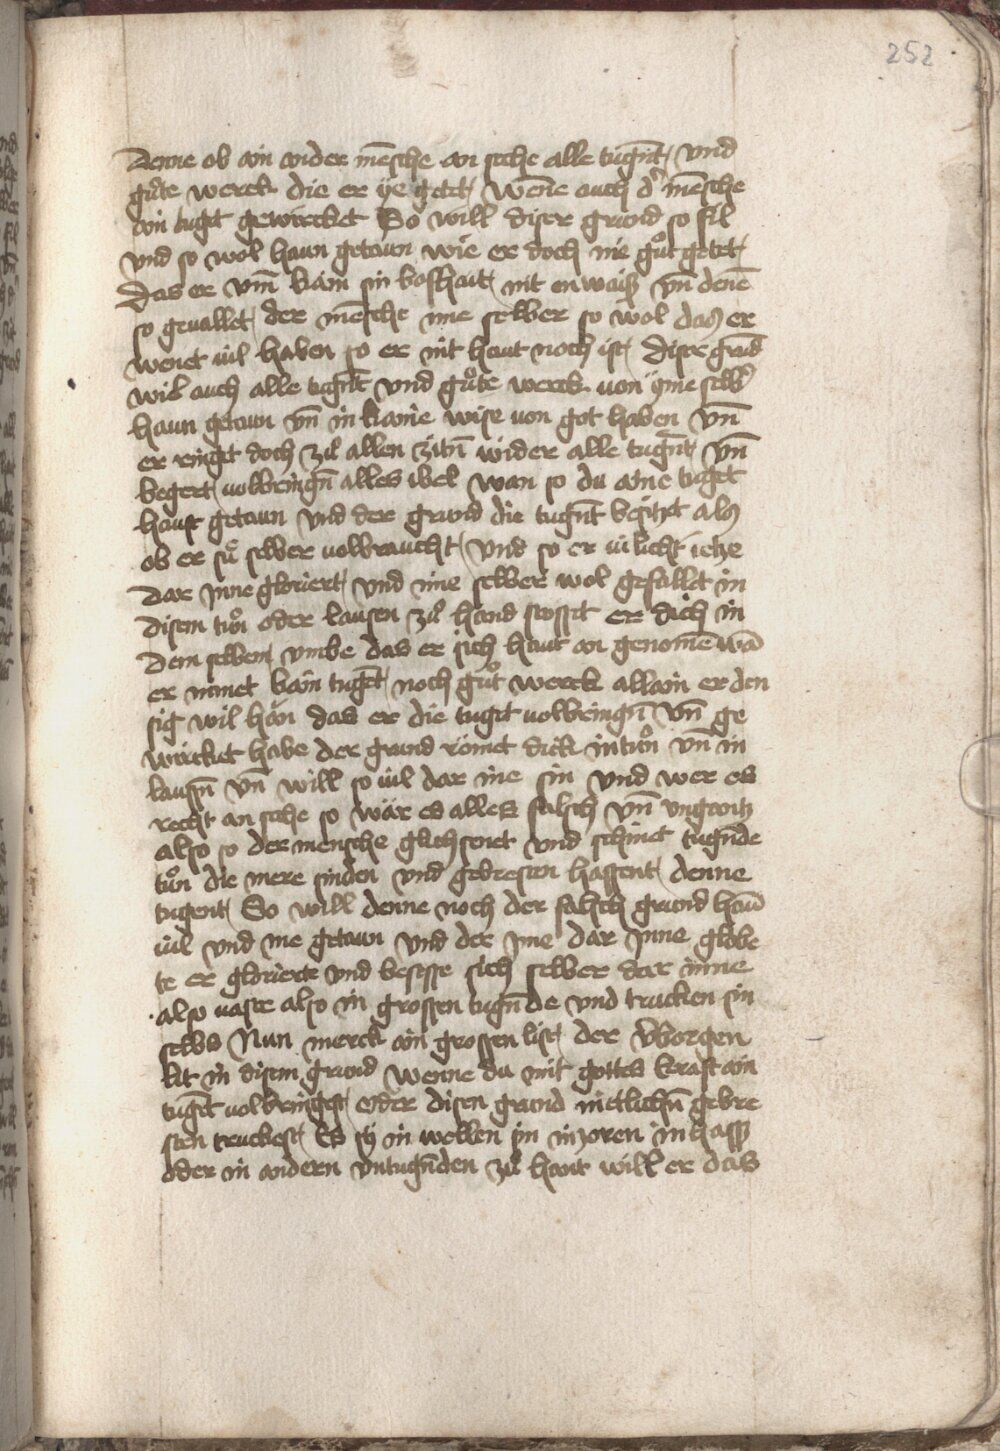 252
Denne ob ain ander mēsche an sehe alle tugn̄t und
gůte werck die er ye getet wēne auch d' mēsche
ain tuget gewircket So will diser grund so fil
vnd so wol haun getaun wie er doch nie gůt getet
Das er vm̄ kain sin boshait nit enwaiß vn̄ denē
so geuallet der mēsche ime selber so wol das er
wenet uil haben so er nit haut noch ist diser grūd
wil auch alle tugn̄t vnd gůte werck von yme selb'
haun getaun vn̄ in kaine wise von got haben vn̄
er ringet doch zů allen zitn̄ wider alle tugn̄t vn̄
begert uolbringn̄ alles ibel wan so du aine tuget
haust getaun vnd der grund die tugn̄t besitzet als
ob er sů selber uolbraucht vnd so er uilicht ietze
Dar Inne gloriert vnd ime selber wol gefallet in
disem tůn oder lausen zů hand stosset er dich in
Dem selbem vmbe das er sich haut an genomē wā
er nimet kain tuget noch gůt werck allain er den
sig wil hān das er die tuget uolbringn̄ vn̄ ge
wircket habe der grund römet dick in tůn vn̄ in
laussn̄ vn̄ will so uil dar ine sin vnd wer es
recht an sehe so wär es alles falsch vn̄ vngantz
also so der mensche glichsenet vnd schinet tugn̄de
tůn die mere sinden vnd gebresten hassent denne
tugent So will denne noch der falsch grund haū
uil vnd me getaun vnd der Ime dar Inne globe
te er glorierte vnd besesse sich selber dar inne
also uaste also in grossen tugn̄de vnd trucken sin
selbs Nun merck ain grossen list der v'borgen
lit in disem grund wenne du mit gottes kraft ain
tuget uolbringest oder disen grund in etlichn̄ gebre
sten truckest Es sy in wellen yn in zoren in hass
oder in andern vntugn̄den zů hant will er das